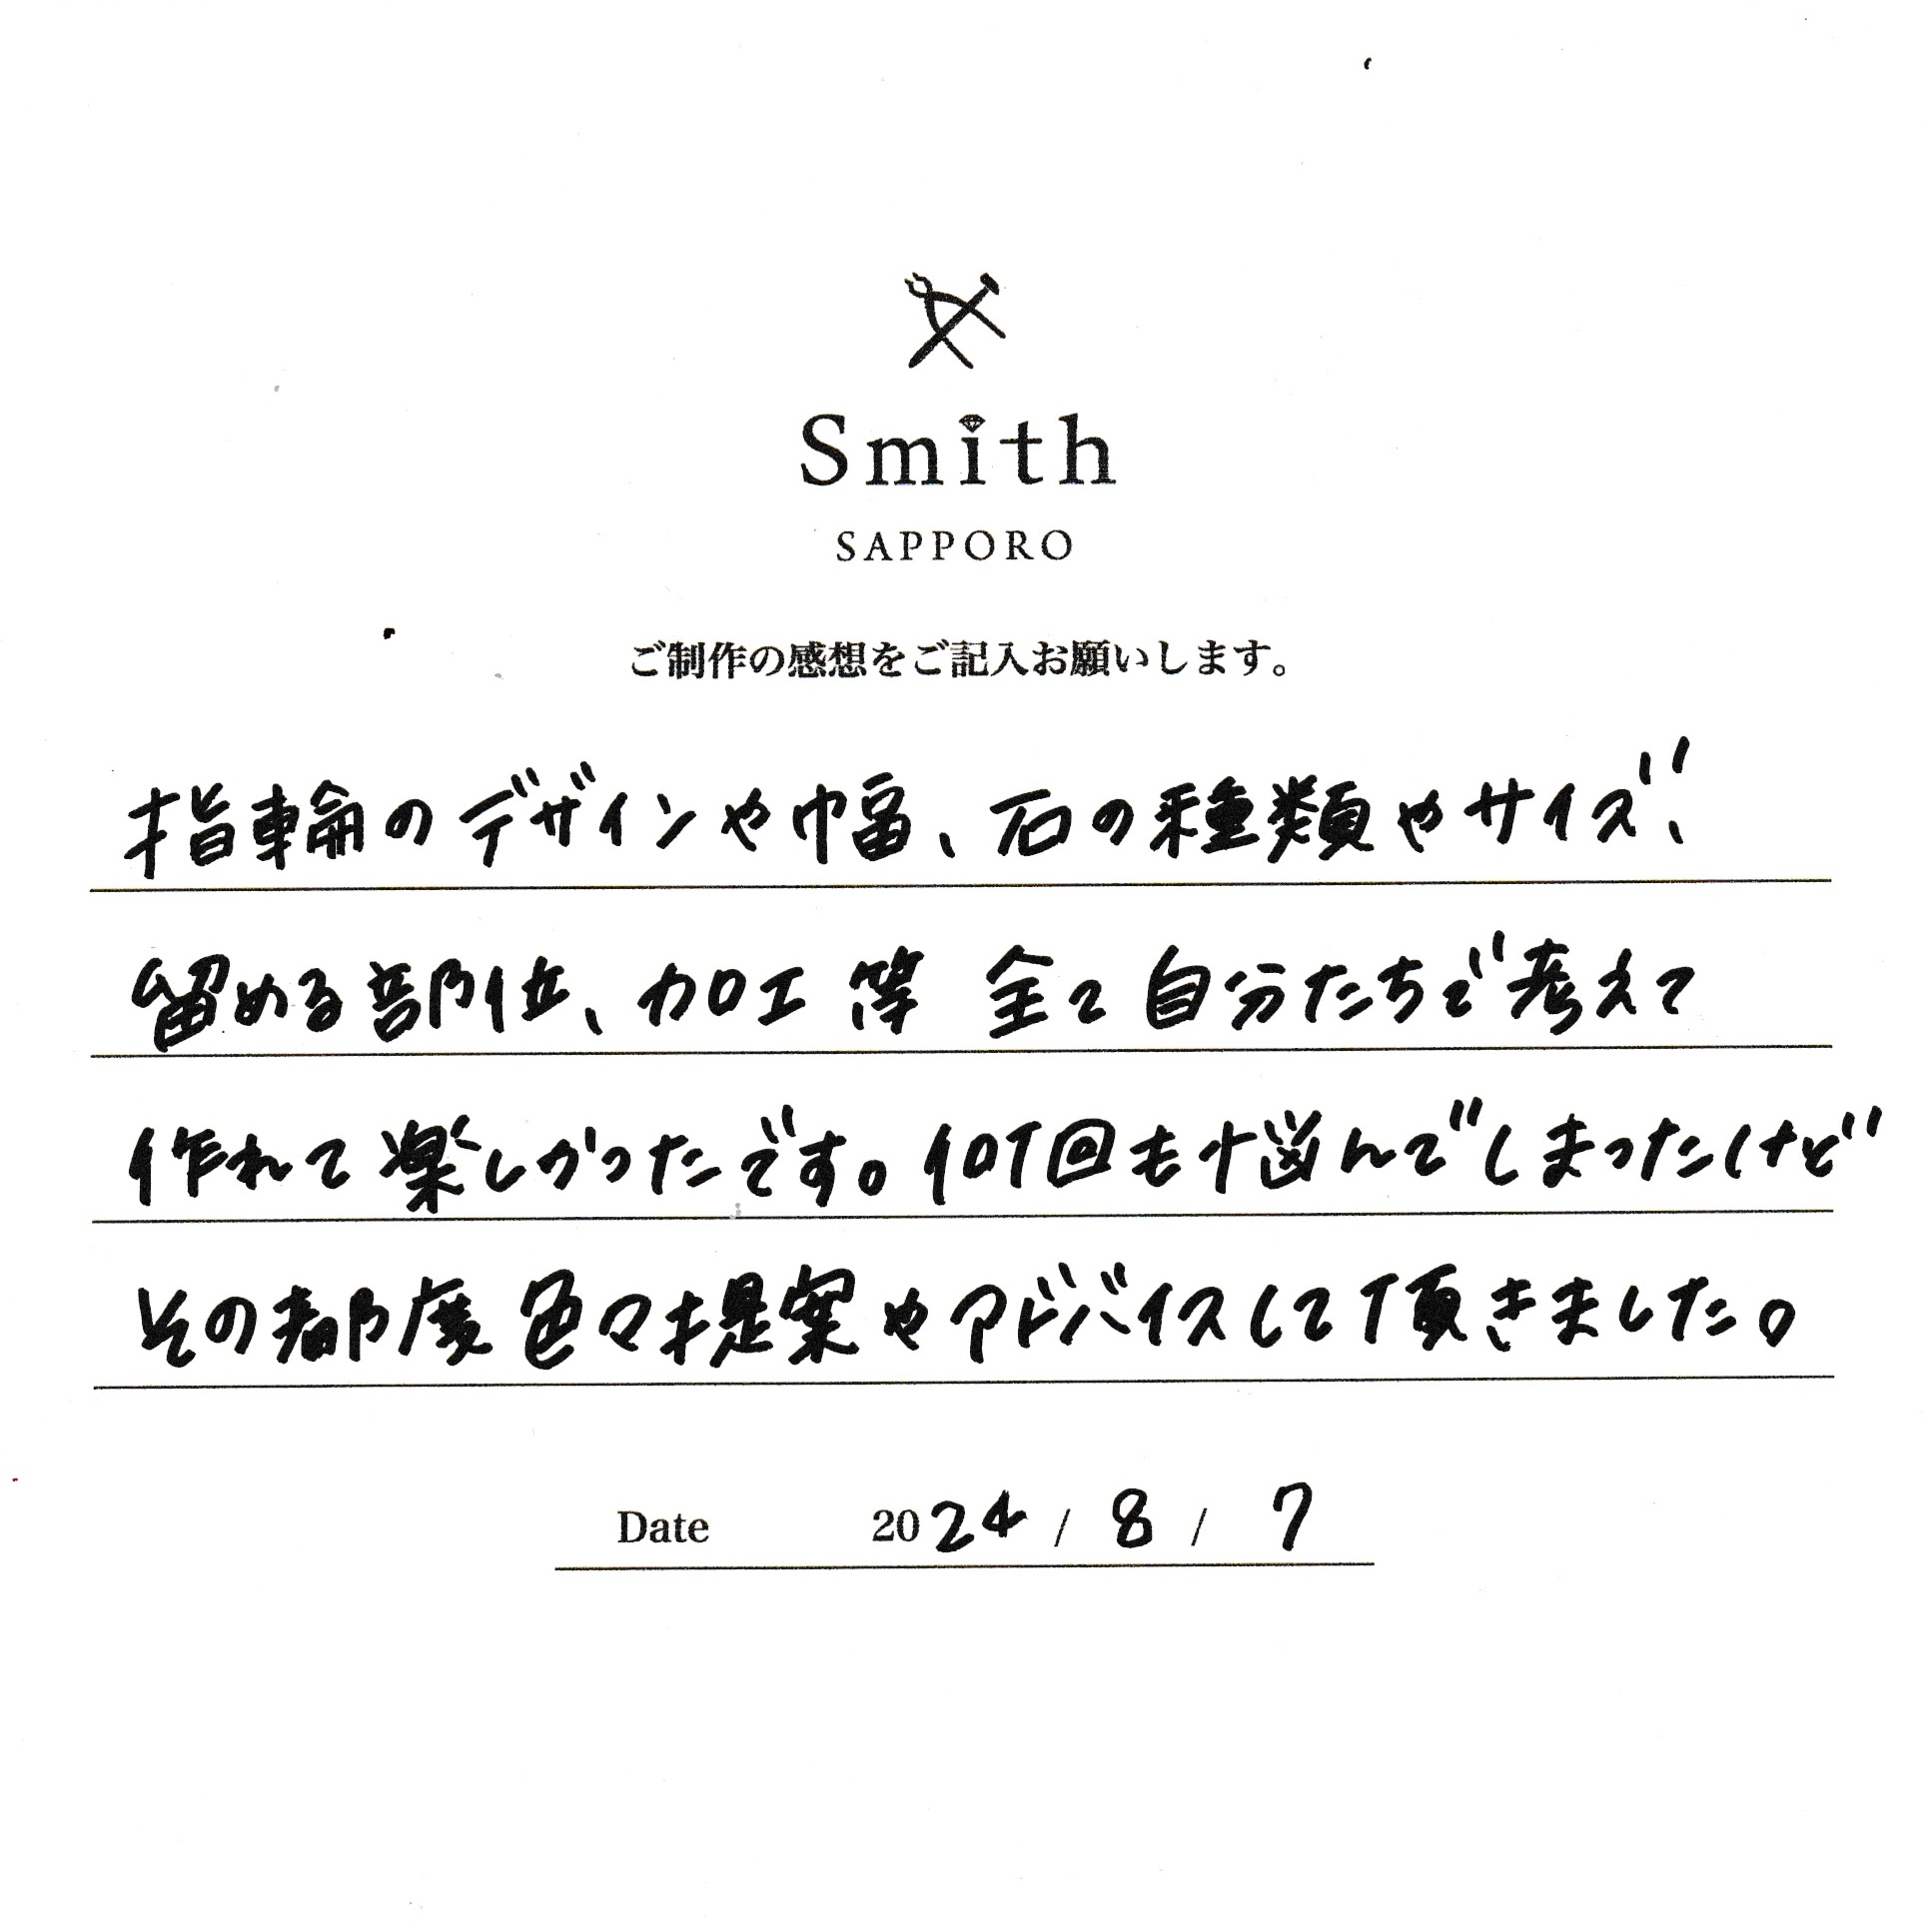 Smith
SAPPORO
ご制作の感想をご記入お願いします。
指輪のデザインや幅、石の種類やサイズ、
留める部位、加工等 全て自分たちで考えて
作れて楽しかったです。何回も悩んでしまったけど
その都度色々提案やアドバイスして頂きました。
Date 2024 / 8 / 7